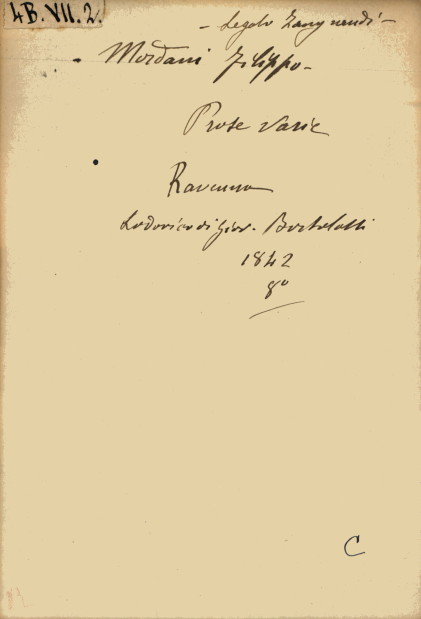 4B.VII.2.
- Legato Zangrandi -
- Mordani Filippo -
Prose varie
Ravenna
Lodovico di Giov. Bortolotti
1842
8º
C